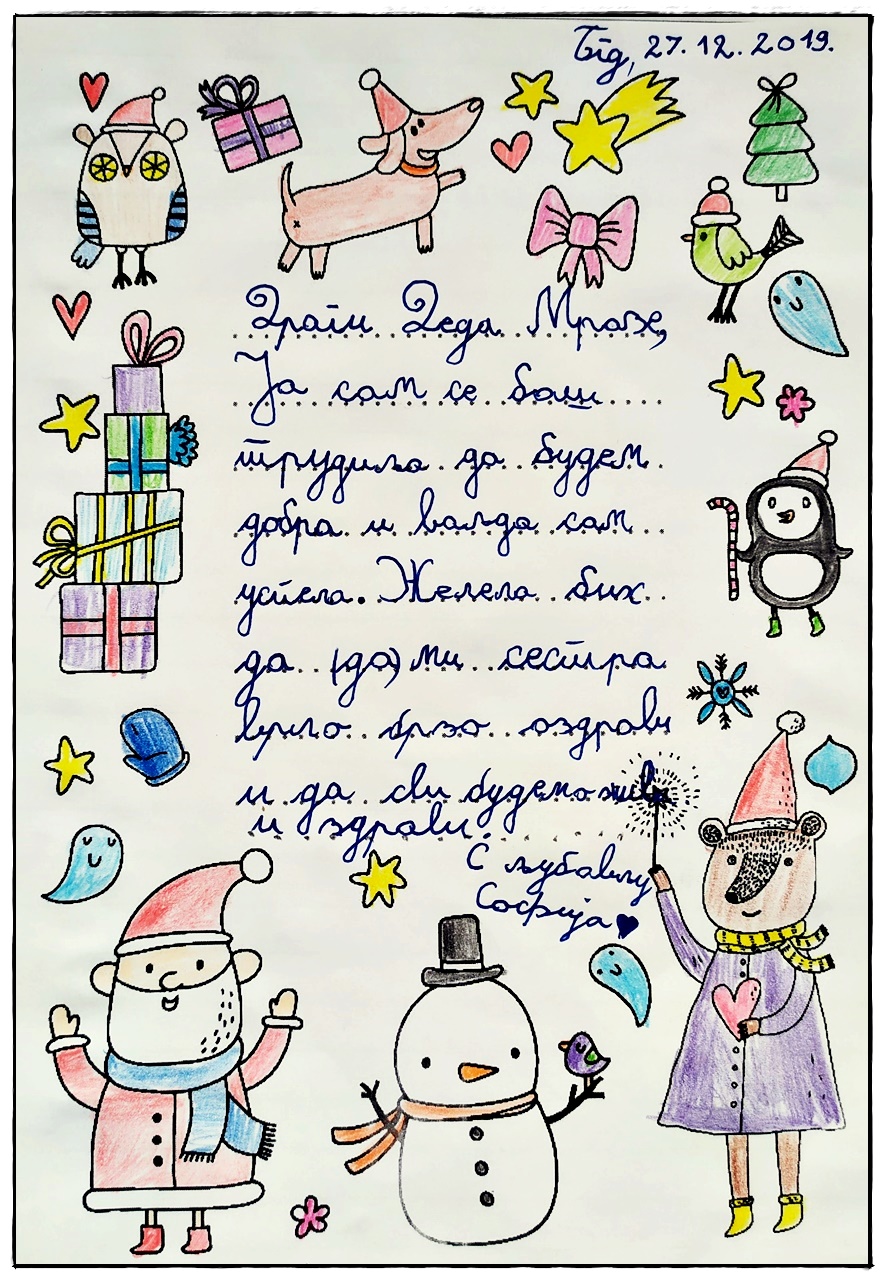 Бгд, 27.12.2019.
Драги Деда Мразе,
Ја сам се баш
трудила да будем
добра и ваљда сам
успела. Желела бих
да (да) ми сестра
врло брзо оздрави
и да сви будемо живи
и здрави.
С љубављу
Софија